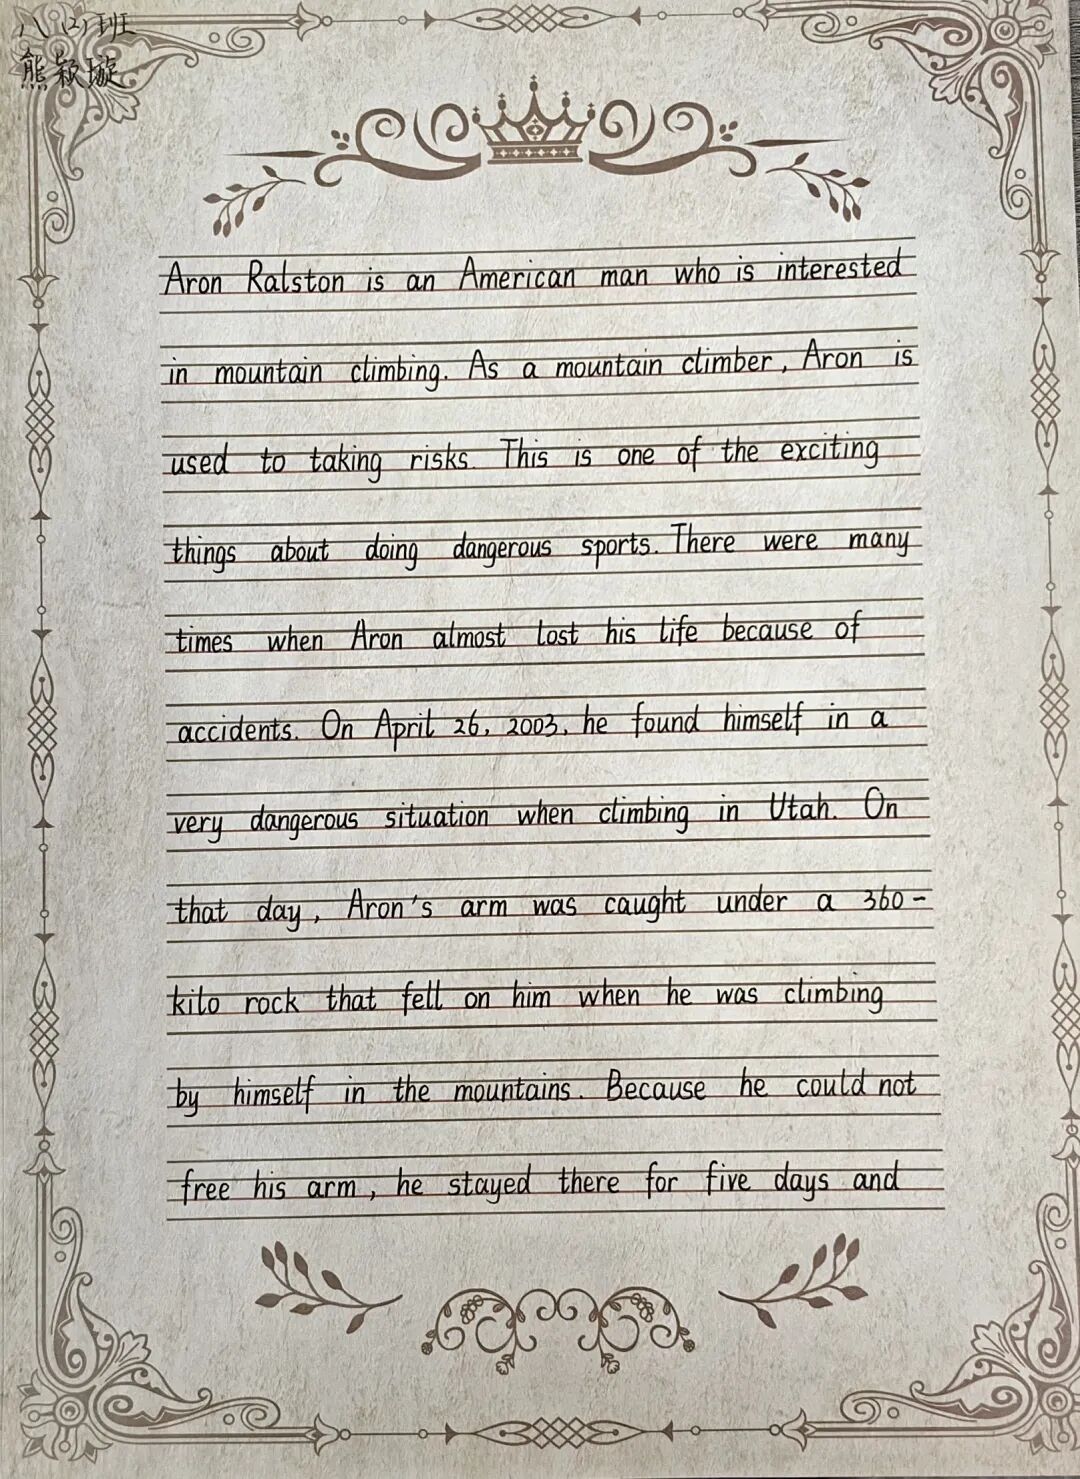 八(2)班
熊颖璇
Aron Ralston is an American man who is interested
in mountain climbing. As a mountain climber, Aron is
used to taking risks. This is one of the exciting
things about doing dangerous sports. There were many
times when Aron almost lost his life because of
accidents. On April 26, 2003, he found himself in a
very dangerous situation when climbing in Utah. On
that day, Aron's arm was caught under a 360-
kilo rock that fell on him when he was climbing
by himself in the mountains. Because he could not
free his arm, he stayed there for five days and